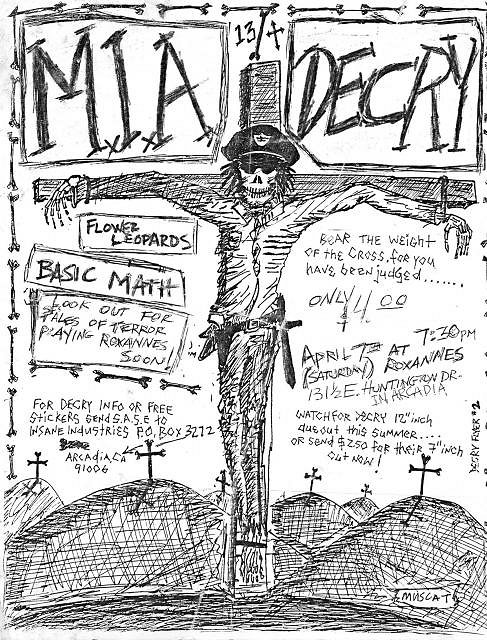 M.I.A
13/
DECRY
FLOWER
LEOPARDS
BASIC MATH
LOOK OUT FOR
TALES OF TERROR
PLAYING ROXANNES
SOON!
BEAR THE WEIGHT
OF THE CROSS, for you
have been judged.......
ONLY 4.00
7:30PM
APRIL 7TH AT
(SATURDAY) ROXANNES
131½ E. HUNTINGTON DR.
IN ARCADIA
WATCH FOR DECRY 12" inch
due out this summer....
or send $2.50 for their 7" inch
out now!
FOR DECRY INFO OR FREE
STICKERS SEND S.A.S.E TO
INSANE INDUSTRIES P.O. BOX 3272
ARCADIA, CA
91006
DECRY FLIER #2
MUSCAT